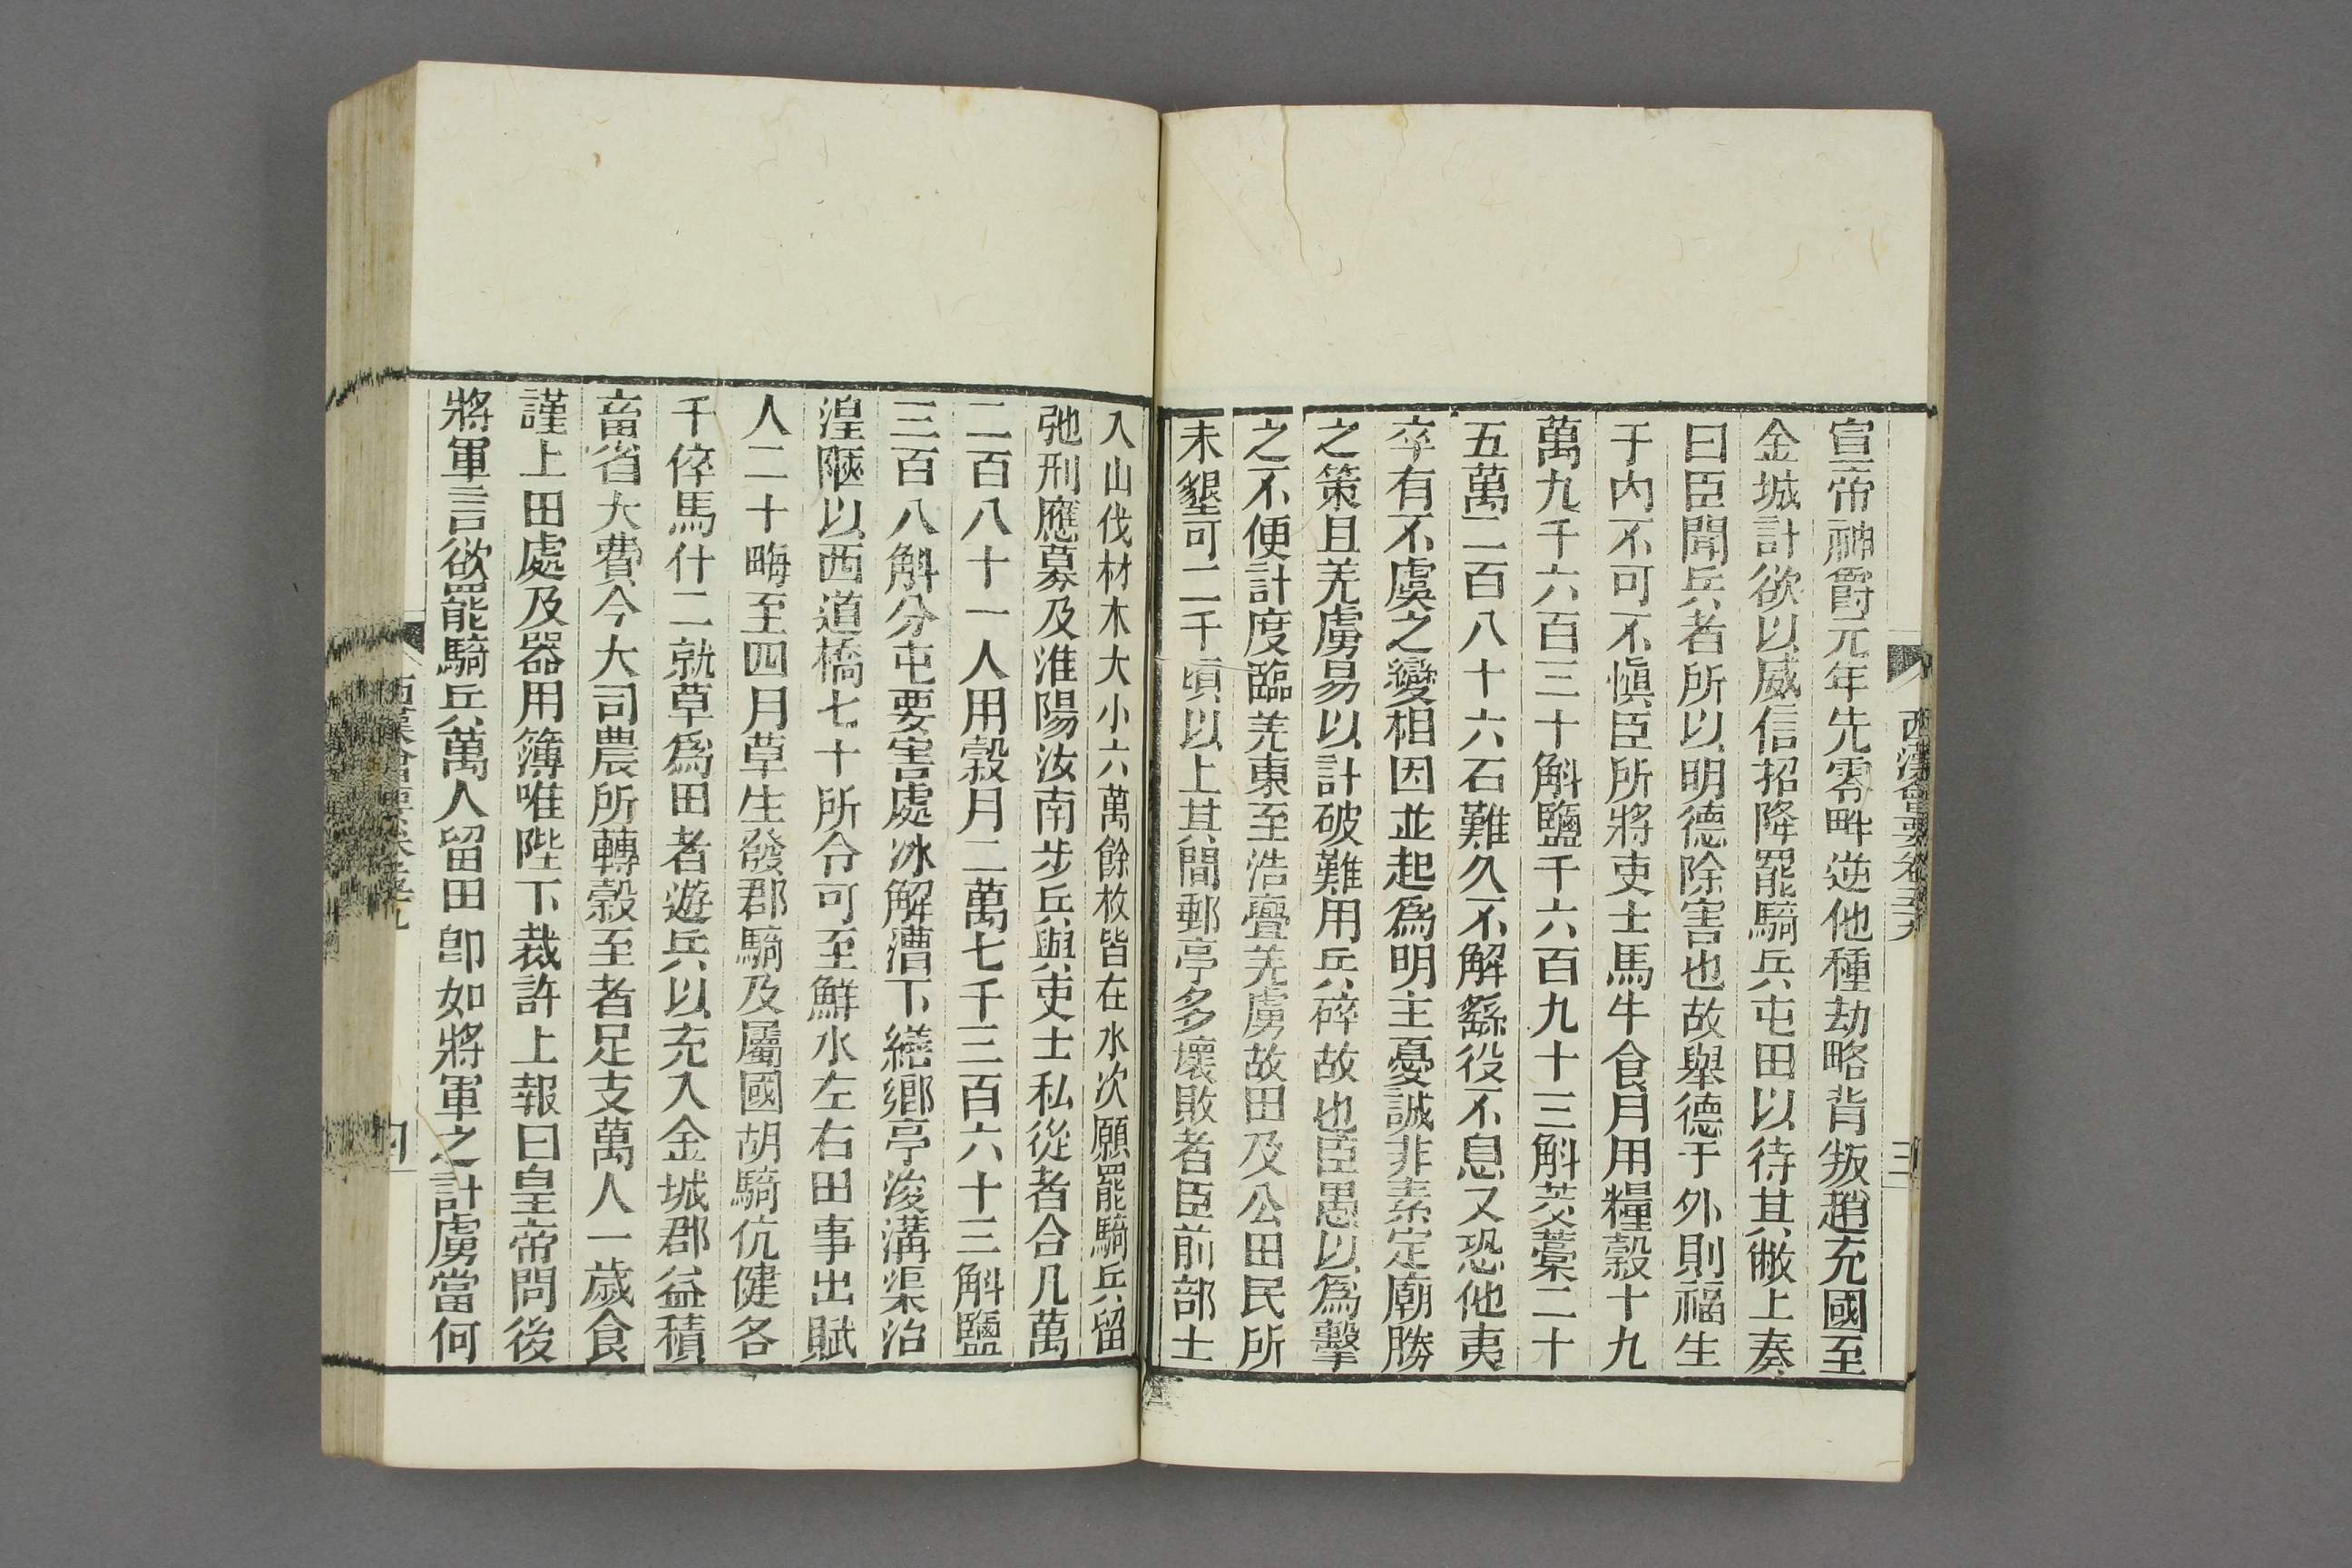 宣帝神爵元年先零畔逆他種劫略背叛趙充國至
金城計欲以威信招降罷騎兵屯田以待其敝上奏
曰臣聞兵者所以明德除害也故舉德于外則福生
于内不可不慎臣所將吏士馬牛食月用糧穀十九
萬九千六百三十斛鹽千六百九十三斛茭藁二十
五萬二百八十六石難久不解繇役不息又恐他夷
卒有不虞之變相因並起爲明主憂誠非素定廟勝
之策且羌虜易以計破難用兵碎故也臣愚以爲擊
之不便計度臨羌東至浩亹羌虜故田及公田民所
未墾可二千頃以上其間郵亭多壞敗者臣前部士
入山伐材木大小六萬餘枚皆在水次願罷騎兵留
弛刑應募及淮陽汝南步兵與吏士私從者合凡萬
二百八十一人用穀月二萬七千三百六十三斛鹽
三百八斛分屯要害處冰解漕下繕鄉亭浚溝渠治
湟陿以西道橋七十所令可至鮮水左右田事出賦
人二十畮至四月草生發郡騎及屬國胡騎伉健各
千倅馬什二就草爲田者遊兵以充入金城郡益積
畜省大費今大司農所轉穀至者足支萬人一歲食
謹上田處及器用簿唯陛下裁許上報曰皇帝問後
將軍言欲罷騎兵萬人留田卽如將軍之計虜當何